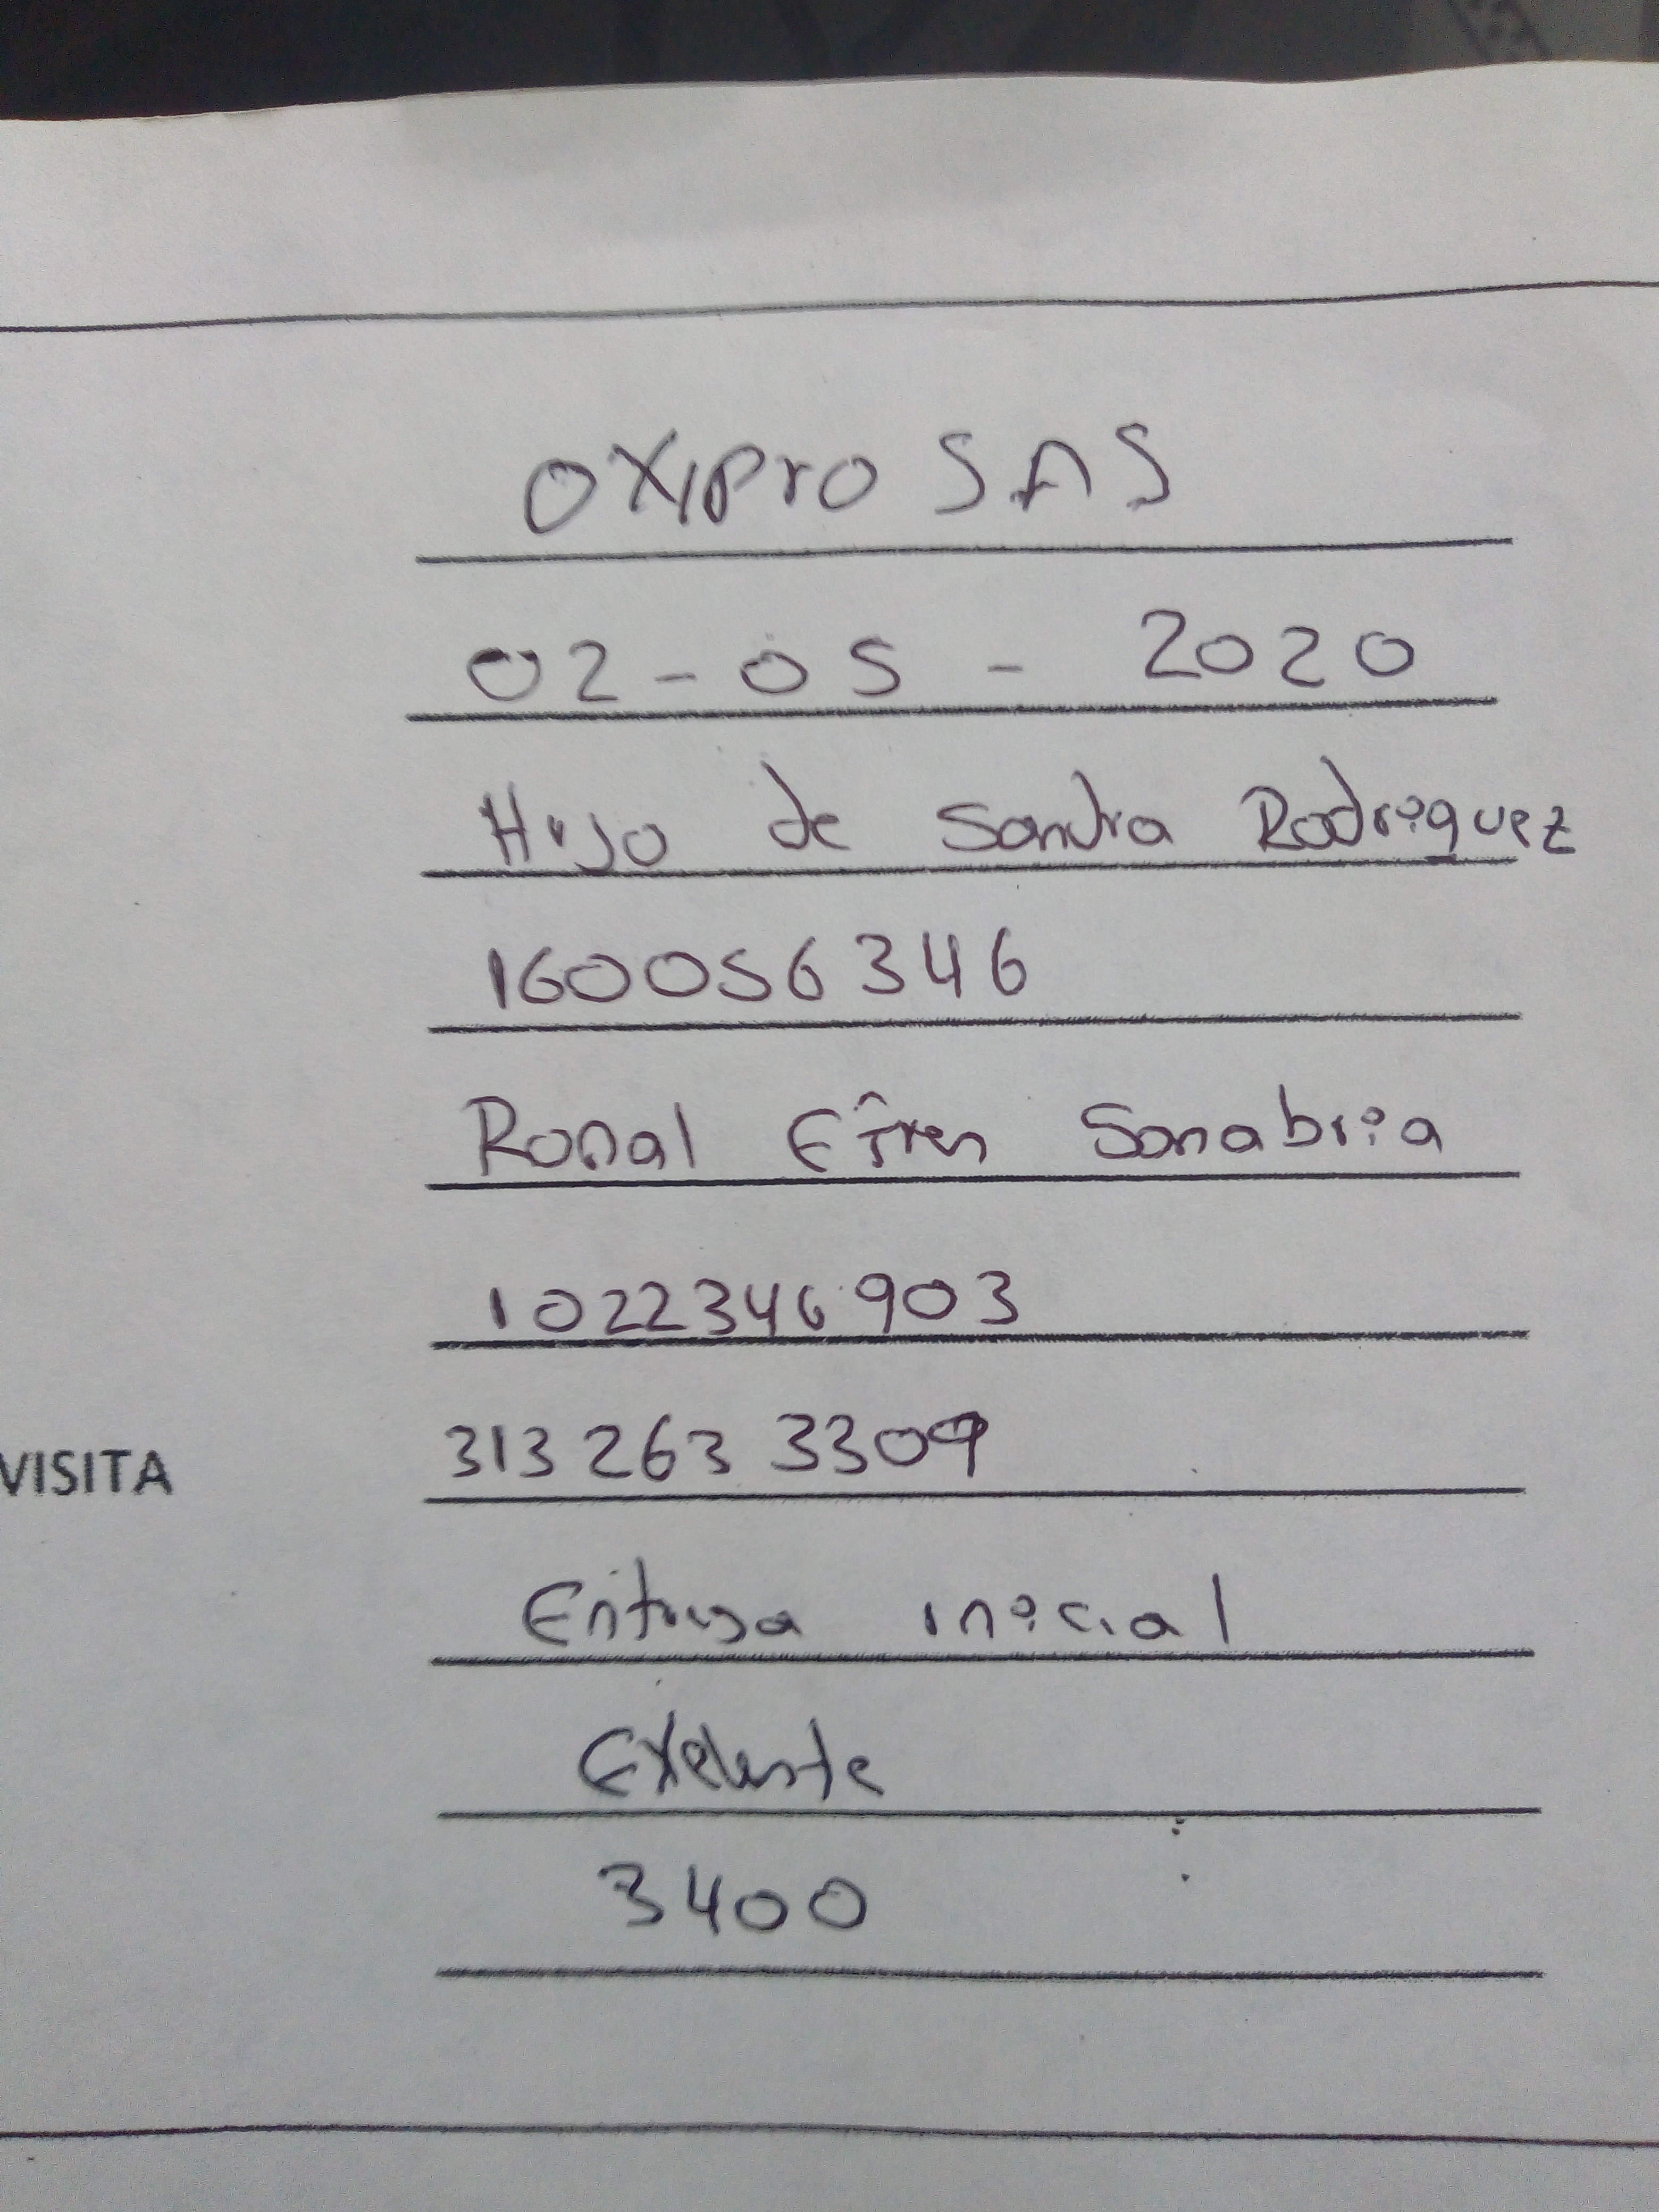 OXIPro SAS
02-05-2020
Hijo de Sandra Rodriguez
160056346
Ronal Efren Sanabria
1022346903
VISITA 313 263 3309
Entrega inicial
Exelente
3400